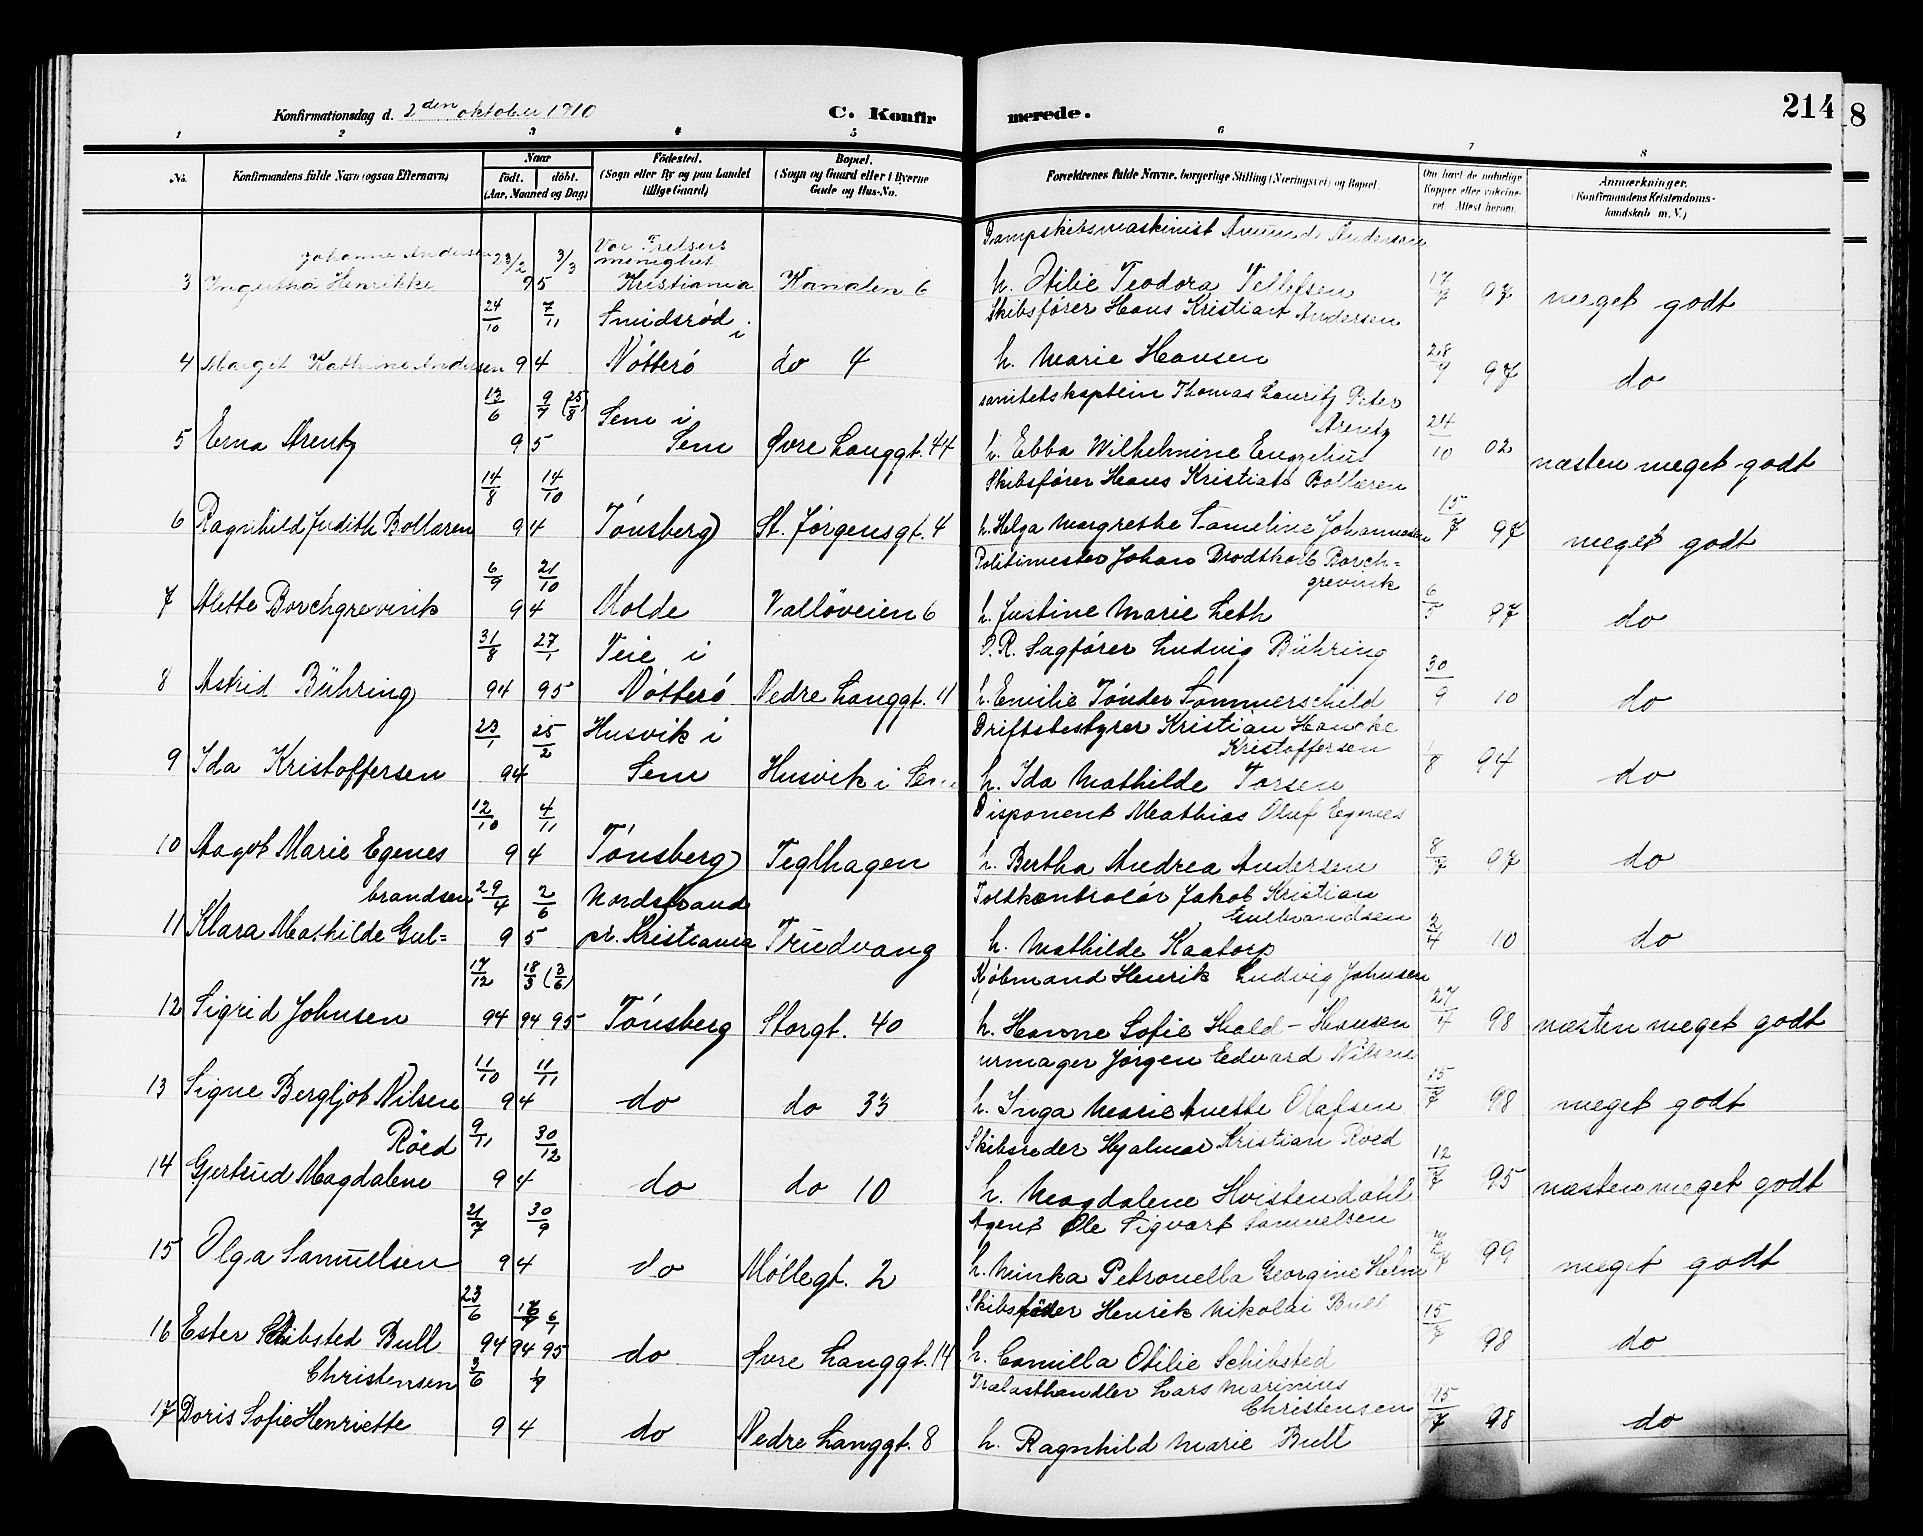 Konfirmationsdag d. 2 den oktober 1910
C. Konfirmerede.
214
8
1 2 3 4 5 6 7 8
No.
Konfirmandens fulde Navn (ogsaa Efternavn)
Naar
født. døbt.
(Aar, Maaned og Dag)
Fødested.
(Sogn eller By og paa Landet tillige Gaard)
Bopæl.
(Sogn og Gaard eller i Byerne Gade og Hus-No.
Forældrenes fulde Navne, borgerlige Stilling (Næringsvei) og Bopæl.
Om havt de naturlige Kopper eller vaccineret. Attest herom.
Anmærkninger.
(Konfirmandens Kristendomskundskab m. V.)
Johanne Andersen 23/2 3/3 Vor Frelsers menighet Dampskibsmaskinist Andersen
3 Henrikke 95 Kristiania Kanalen 6 h. Otilie Teodora Tellefsen 17/7 97 meget godt
24/10 7/11 Smidsrød i Skibsfører Hans Kristian Andersen
4 Marget Kathrine Andersen 94 Nøtterø do 4 h. Marie Hansen 28/9 97 do
13/6 9/7 (25/8) Sem i sanitetskaptein Thomas Lauritz Peter Arentz
5 Erna Arentz 95 Sem Øvre Langgt. 44 h. Ebba Wilhelmine Engelhus 24/10 02 næsten meget godt
14/8 14/10 Skibsfører Hans Kristian Bollæren
6 Ragnhild Judith Bollæren 94 Tønsberg St. Jørgensgt. 4 h. Helga Margrethe Sameline Johannesen 15/7 97 meget godt
6/9 21/10 Politimester Johan Brodtkorb Borchgrevink
7 Alette Borchgrevink 94 Molde Valløveien 6 h. Justine Marie Leth 97 do
31/8 27/1 Teie i O.R. Sagfører Ludvig Bühring
8 Astrid Bühring 94 95 Nøtterø Nedre Langgt. 11 h. Emilie Tønder Sommerschild 30/9 10 do
23/1 25/2 Husvik i Driftsbestyrer Kristian Hancke Kristoffersen
9 Ida Kristoffersen 94 Sem Husvik i Sem h. Ida Mathilde Torsen 1/8 94 do
12/10 4/11 Disponent Mathias Oluf Egenes
10 Aagot Marie Egenes 94 Tønsberg Teglhagen h. Bertha Andrea Andersen 8/7 97 do
brandsen 29/4 2/6 Nordstrand Toldkontrolør Jakob Kristian Gulbrandsen
11 Klara Mathilde Gul= 95 pr. Kristiania Truedvang h. Mathilde Kaatorp 2/4 10 do
17/12 18/3 (3/6) Kjøbmand Henrik Ludvig Johnsen
12 Sigrid Johnsen 94 94 95 Tønsberg Storgt. 40 h. Hanne Sofie Hald-Hansen 27/4 98 næsten meget godt
11/10 11/11 urmager Jørgen Edvard Nilsen
13 Signe Bergljot Nilsen 94 do do 33 h. Inga Marie Anette Olafsen 15/7 98 meget godt
Røed 9/11 30/12 Skibsreder Hjalmar Kristian Røed
14 Gjertrud Magdalene 94 do do 10 h. Magdalene Hvistendahl 12/7 95 næsten meget godt
21/7 30/9 Agent Ole Sigvart Samuelsen
15 Olga Samuelsen 94 do Møllegt. 2 h. Minka Petronella Georgine Helm 99 meget godt
23/6 6/1 Henrik Nikolai Bull
16 Ester Schibsted Bull 94 94 95 do Øvre Langgt. 14 h. Camilla Otilie Schibsted 15/7 98 do
Christensen 3/6 Trælasthandler Lars Marinius Christensen
17 Doris Sofie Henriette 94 do Nedre Langgt. 8 h. Ragnhild Marie Bull 15/7 98 do